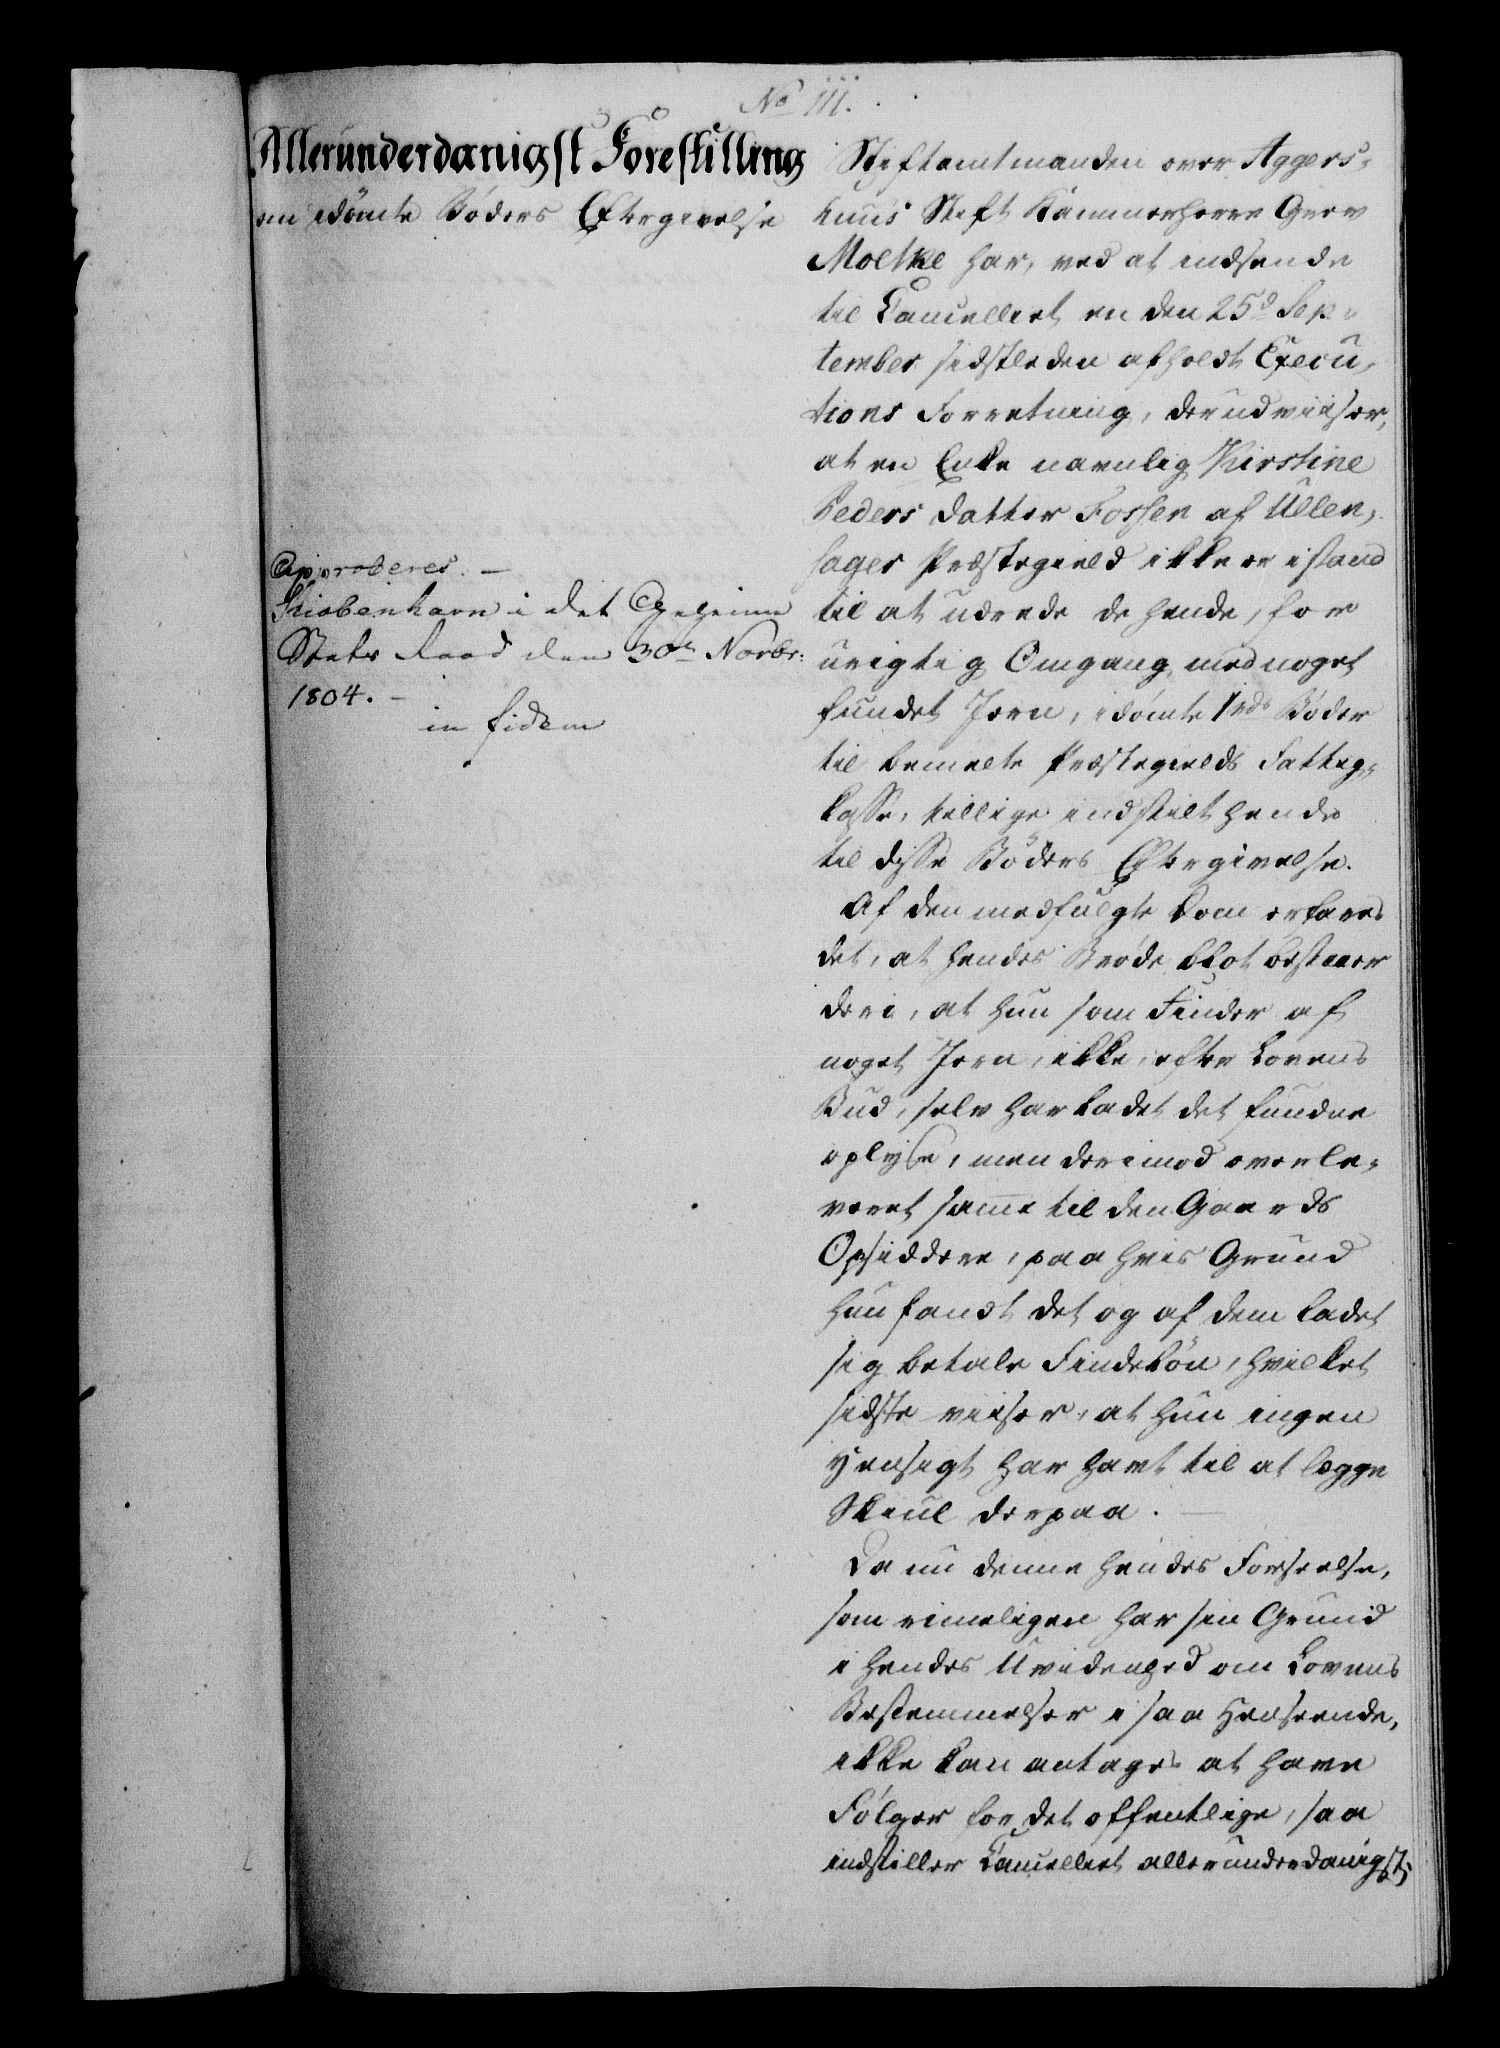 No 111.
Allerunderdanigst Forestilling
om idömte Böders Eftergivelse
Approberes. —
Kiöbenhavn i det Geheime
Stats Raad den 30te Novbr:
1804. —
in fidem
Stiftamtmanden over Aggers-
huus Stift Kammerherre Grev
Moltke har, ved at indsende
til Cancelliet en den 25d Sep-
tember sidstleden afholdt Execu-
tions Forretning, der udviiser,
at en Enke navnlig Kirstine
Peders Datter Fossen af Ullen-
sager Præstegield ikke er istand
til at udrede de hende, for
urigtig Omgang med noget
fundet Jern, idömte 1rds Böder
til bemelte Præstegields Fattig-
Casse, tillige indstilt hende
til disse Böders Eftergivelse.
Af den medfulgte Dom erfares
det, at hendes Bröde blot bestaaer
deri, at hun som Finder af
noget Jern, ikke, efter Lovens
Bud, selv har ladet det fundne
oplyse, men derimod overle-
veret samme til den Gaards
Opsiddere, paa hvis Grund
hun fandt det og af dem ladet
sig betale Findelön, hvilket
sidste viiser, at hun ingen
Hensigt har havt til at legge
Skiul derpaa. —
Da nu denne hendes Forseelse,
som rimeligen har sin Grund
i hendes Uvidenhed om Lovens
Bestemmelser i saa Henseende,
ikke kan antages at have
Fölger for det offentlige, saa
indstiller Cancelliet allerunderdanigst,